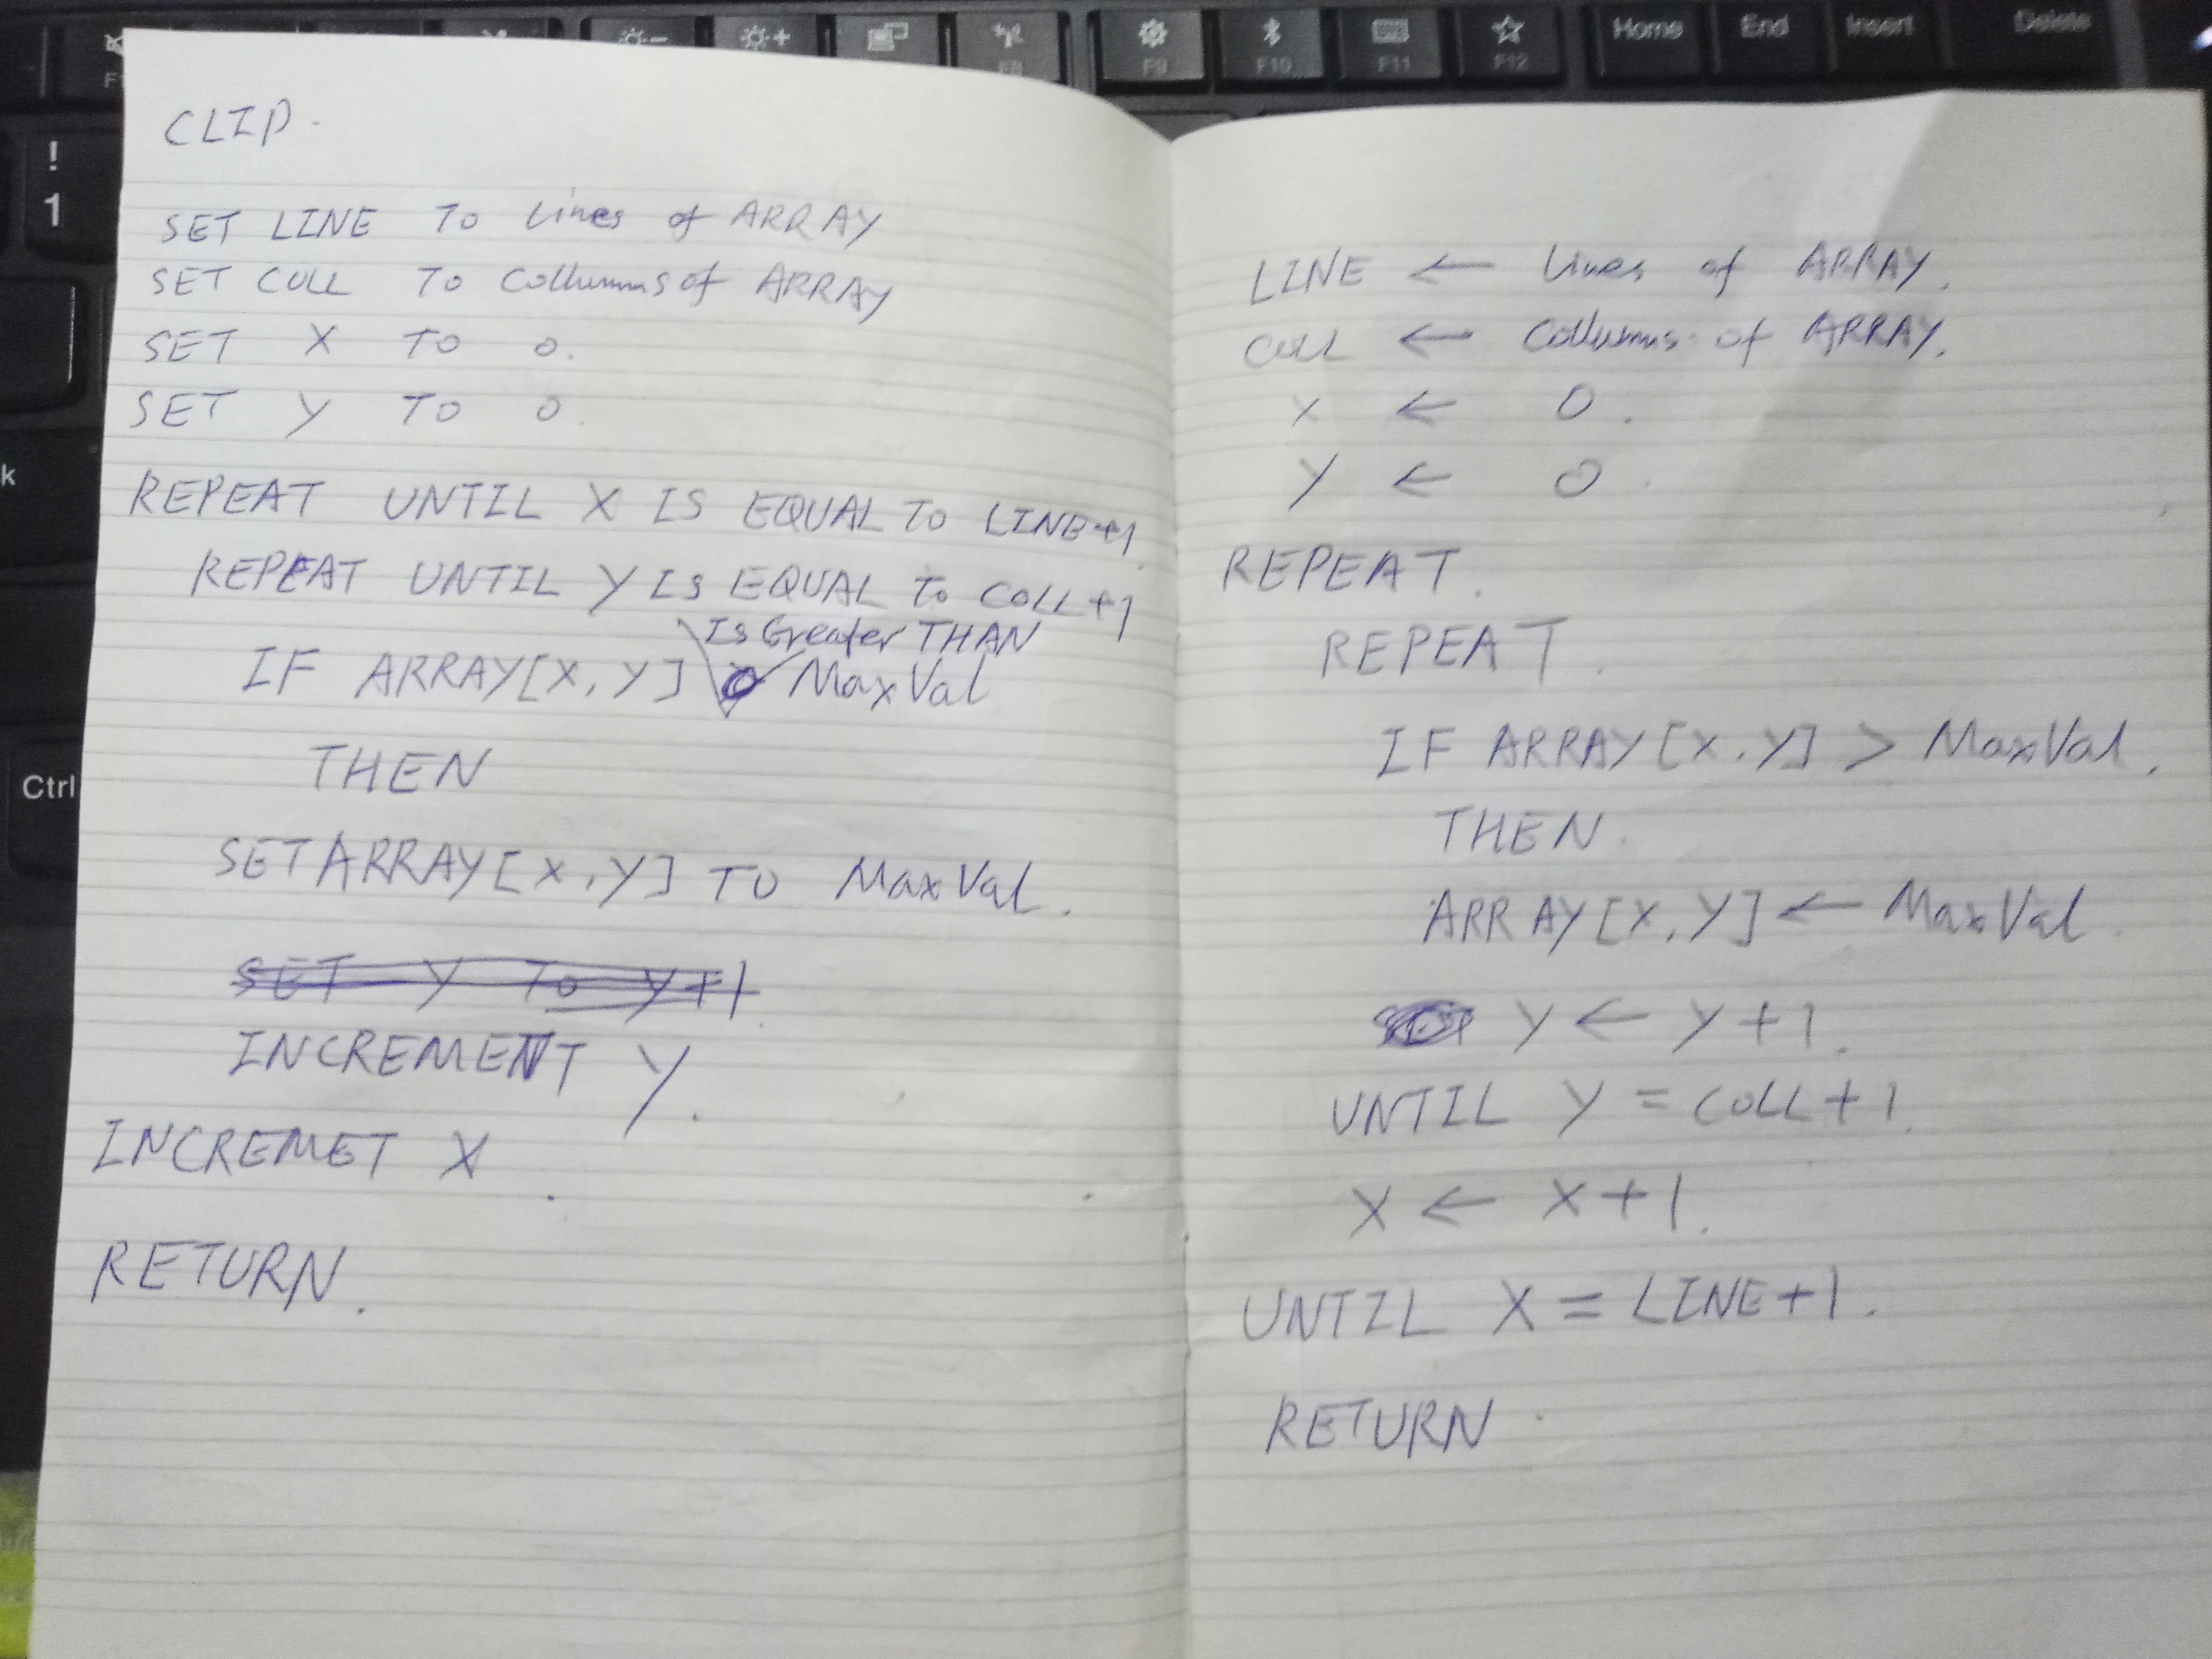 F9
F10
F11
F12
Home
End
Insert
Delete
!
1
k
Ctrl
CLIP.
SET LINE TO Lines of ARRAY
SET COLL TO Collumns of ARRAY
SET X TO 0.
SET Y TO 0.
REPEAT UNTIL X IS EQUAL TO LINE+1
REPEAT UNTIL Y IS EQUAL To COLL+1
Is Greater THAN
IF ARRAY[X,Y] MaxVal
THEN
SET ARRAY[X,Y] TO MaxVal.
SET Y To Y+1
INCREMENT Y.
INCREMET X.
RETURN.
LINE ← Lines of ARRAY.
COLL ← Collumns of ARRAY.
X ← 0.
Y ← 0.
REPEAT.
REPEAT.
IF ARRAY[X,Y] > MaxVal.
THEN.
ARRAY[X,Y] ← MaxVal.
Y ← Y+1.
UNTIL Y = COLL+1.
X ← X+1.
UNTIL X = LINE+1.
RETURN.